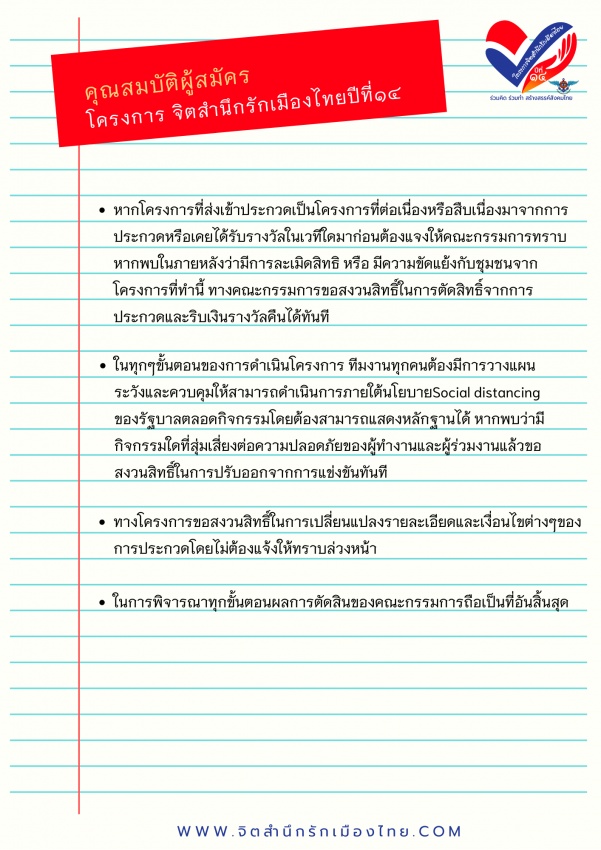 คุณสมบัติผู้สมัคร
โครงการ จิตสำนึกรักเมืองไทยปีที่๑๔
โครงการจิตสำนึกรักเมืองไทย
ปีที่
๑๔
ร่วมคิด ร่วมทำ สร้างสรรค์สังคมไทย
• หากโครงการที่ส่งเข้าประกวดเป็นโครงการที่ต่อเนื่องหรือสืบเนื่องมาจากการ
ประกวดหรือเคยได้รับรางวัลในเวทีใดมาก่อนต้องแจงให้คณะกรรมการทราบ
หากพบในภายหลังว่ามีการละเมิดสิทธิ หรือ มีความขัดแย้งกับชุมชนจาก
โครงการที่ทำนี้ ทางคณะกรรมการขอสงวนสิทธิ์ในการตัดสิทธิ์จากการ
ประกวดและริบเงินรางวัลคืนได้ทันที
• ในทุกๆขั้นตอนของการดำเนินโครงการ ทีมงานทุกคนต้องมีการวางแผน
ระวังและควบคุมให้สามารถดำเนินการภายใต้นโยบายSocial distancing
ของรัฐบาลตลอดกิจกรรมโดยต้องสามารถแสดงหลักฐานได้ หากพบว่ามี
กิจกรรมใดที่สุ่มเสี่ยงต่อความปลอดภัยของผู้ทำงานและผู้ร่วมงานแล้วขอ
สงวนสิทธิ์ในการปรับออกจากการแข่งขันทันที
• ทางโครงการขอสงวนสิทธิ์ในการเปลี่ยนแปลงรายละเอียดและเงื่อนไขต่างๆของ
การประกวดโดยไม่ต้องแจ้งให้ทราบล่วงหน้า
• ในการพิจารณาทุกขั้นตอนผลการตัดสินของคณะกรรมการถือเป็นที่อันสิ้นสุด
WWW.จิตสำนึกรักเมืองไทย.COM